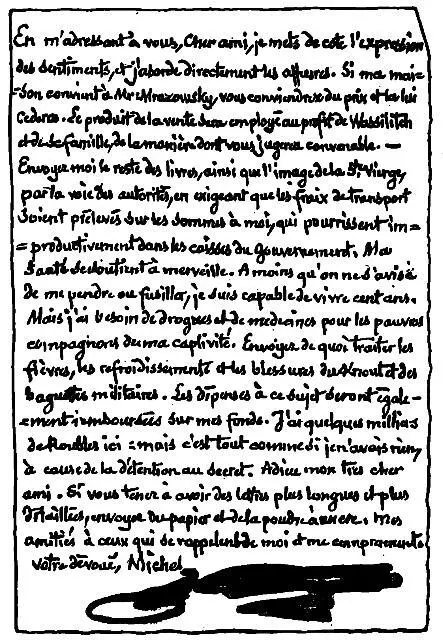 En m'adressant à vous, Cher ami, je mets de coté l'expression
des sentiments, et j'aborde directement les affaires. Si ma mai=
=son convient à Mr Mrazowsky, vous conviendrez du prix et la lui
cederez. Le produit de la vente sera employé au profit de Wassilitch
et de sa famille, de la manière dont vous jugerez convenable. —
Envoyez moi le reste des livres, ainsi que l'image de la Ste Vierge,
par la voie des autorités, en exigeant que les fraix de transport
soient prélevés sur les sommes à moi, qui pourrissent im=
=productivement dans les caisses du Gouvernement. Ma
Santé se soutient à merveille. A moins qu'on ne s'avise
de me pendre ou fusiller, je suis capable de vivre cent ans.
Mais j'ai besoin de drogues et de medecines pour les pauvres
compagnons de ma captivité. Envoyez de quoi traiter les
fièvres, les refroidissements et les blessures du Knout et des
baguettes militaires. Les dépenses à ce sujet seront égale=
=ment remboursées sur mes fonds. J'ai quelques milliers
de Roubles ici = mais c'est tout comme si je n'avois rien,
à cause de la détention au secret. Adieu mon très cher
ami. Si vous tenez à avoir des lettres plus longues et plus
détaillées, envoyez du papier et de la poudre à encre. Mes
amitiés à ceux qui se rappellent de moi et me comprennent.
Votre dévoué, Michel